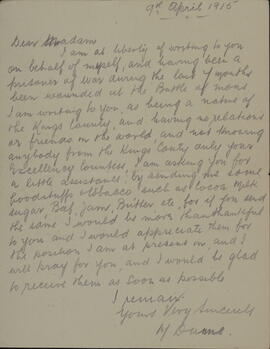 9th April 1915
Dear Madam
I am at liberty of writing to you
on behalf of myself, and having been a
prisoner of war during the last 7 months
been wounded at the Battle of Mons
I am writing to you, as being a native of
the Kings County, and having no relations
or friends in the world and not knowing
anybody from the Kings County only your
Excellency Countess, I am asking you for
a little assistance, by sending me some
foodstuffs tobbacco such as cocoa Milk
sugar, Jam, Butter etc, for if you send
the same I would be more than thankful
to you and I would appreciate them for
the position I am at present in, and I
will pray for you, and I would be glad
to receive them as soon as possible
I remain
Yours Very Sincerely
M Dunne.